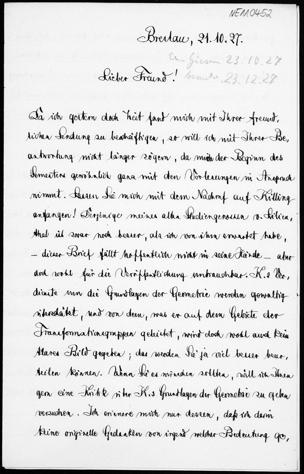 NEM.0452
Breslau, 21.10.27.
23.10.27
23.12.27
Lieber Freund!
Da ich gestern doch Zeit fand mich mit Ihrer freund-
lichen Sendung zu beschäftigen, so will ich mit Ihrer Be-
antwortung nicht länger zögern, da mich der Beginn des
Semesters gewöhnlich ganz mit den Vorlesungen in Anspruch
nimmt. Lassen Sie mich mit dem Nachruf auf Killing
anfangen! Derjenige meines alten Studiengenossen v. Lilien-
thal ist zwar noch besser, als ich von ihm erwartet habe,
– dieser Brief fällt hoffentlich nicht in seine Hände – aber
doch wohl für die Veröffentlichung unbrauchbar. K.s Ver-
dienste um die Grundlagen der Geometrie werden gewaltig
überschätzt, und von dem, was er auf dem Gebiete der
Transformationsgruppen geleistet, wird doch wohl auch kein
klares Bild gegeben; das werden Sie ja viel besser beur-
teilen können. Wenn Sie es wünschen sollten, will ich Ihnen
gern eine Kritik über K.s Grundlagen der Geometrie zu geben
versuchen. Ich erinnere mich nur dessen, daß ich darin
keine originelle Gedanken von irgend welcher Bedeutung ge-